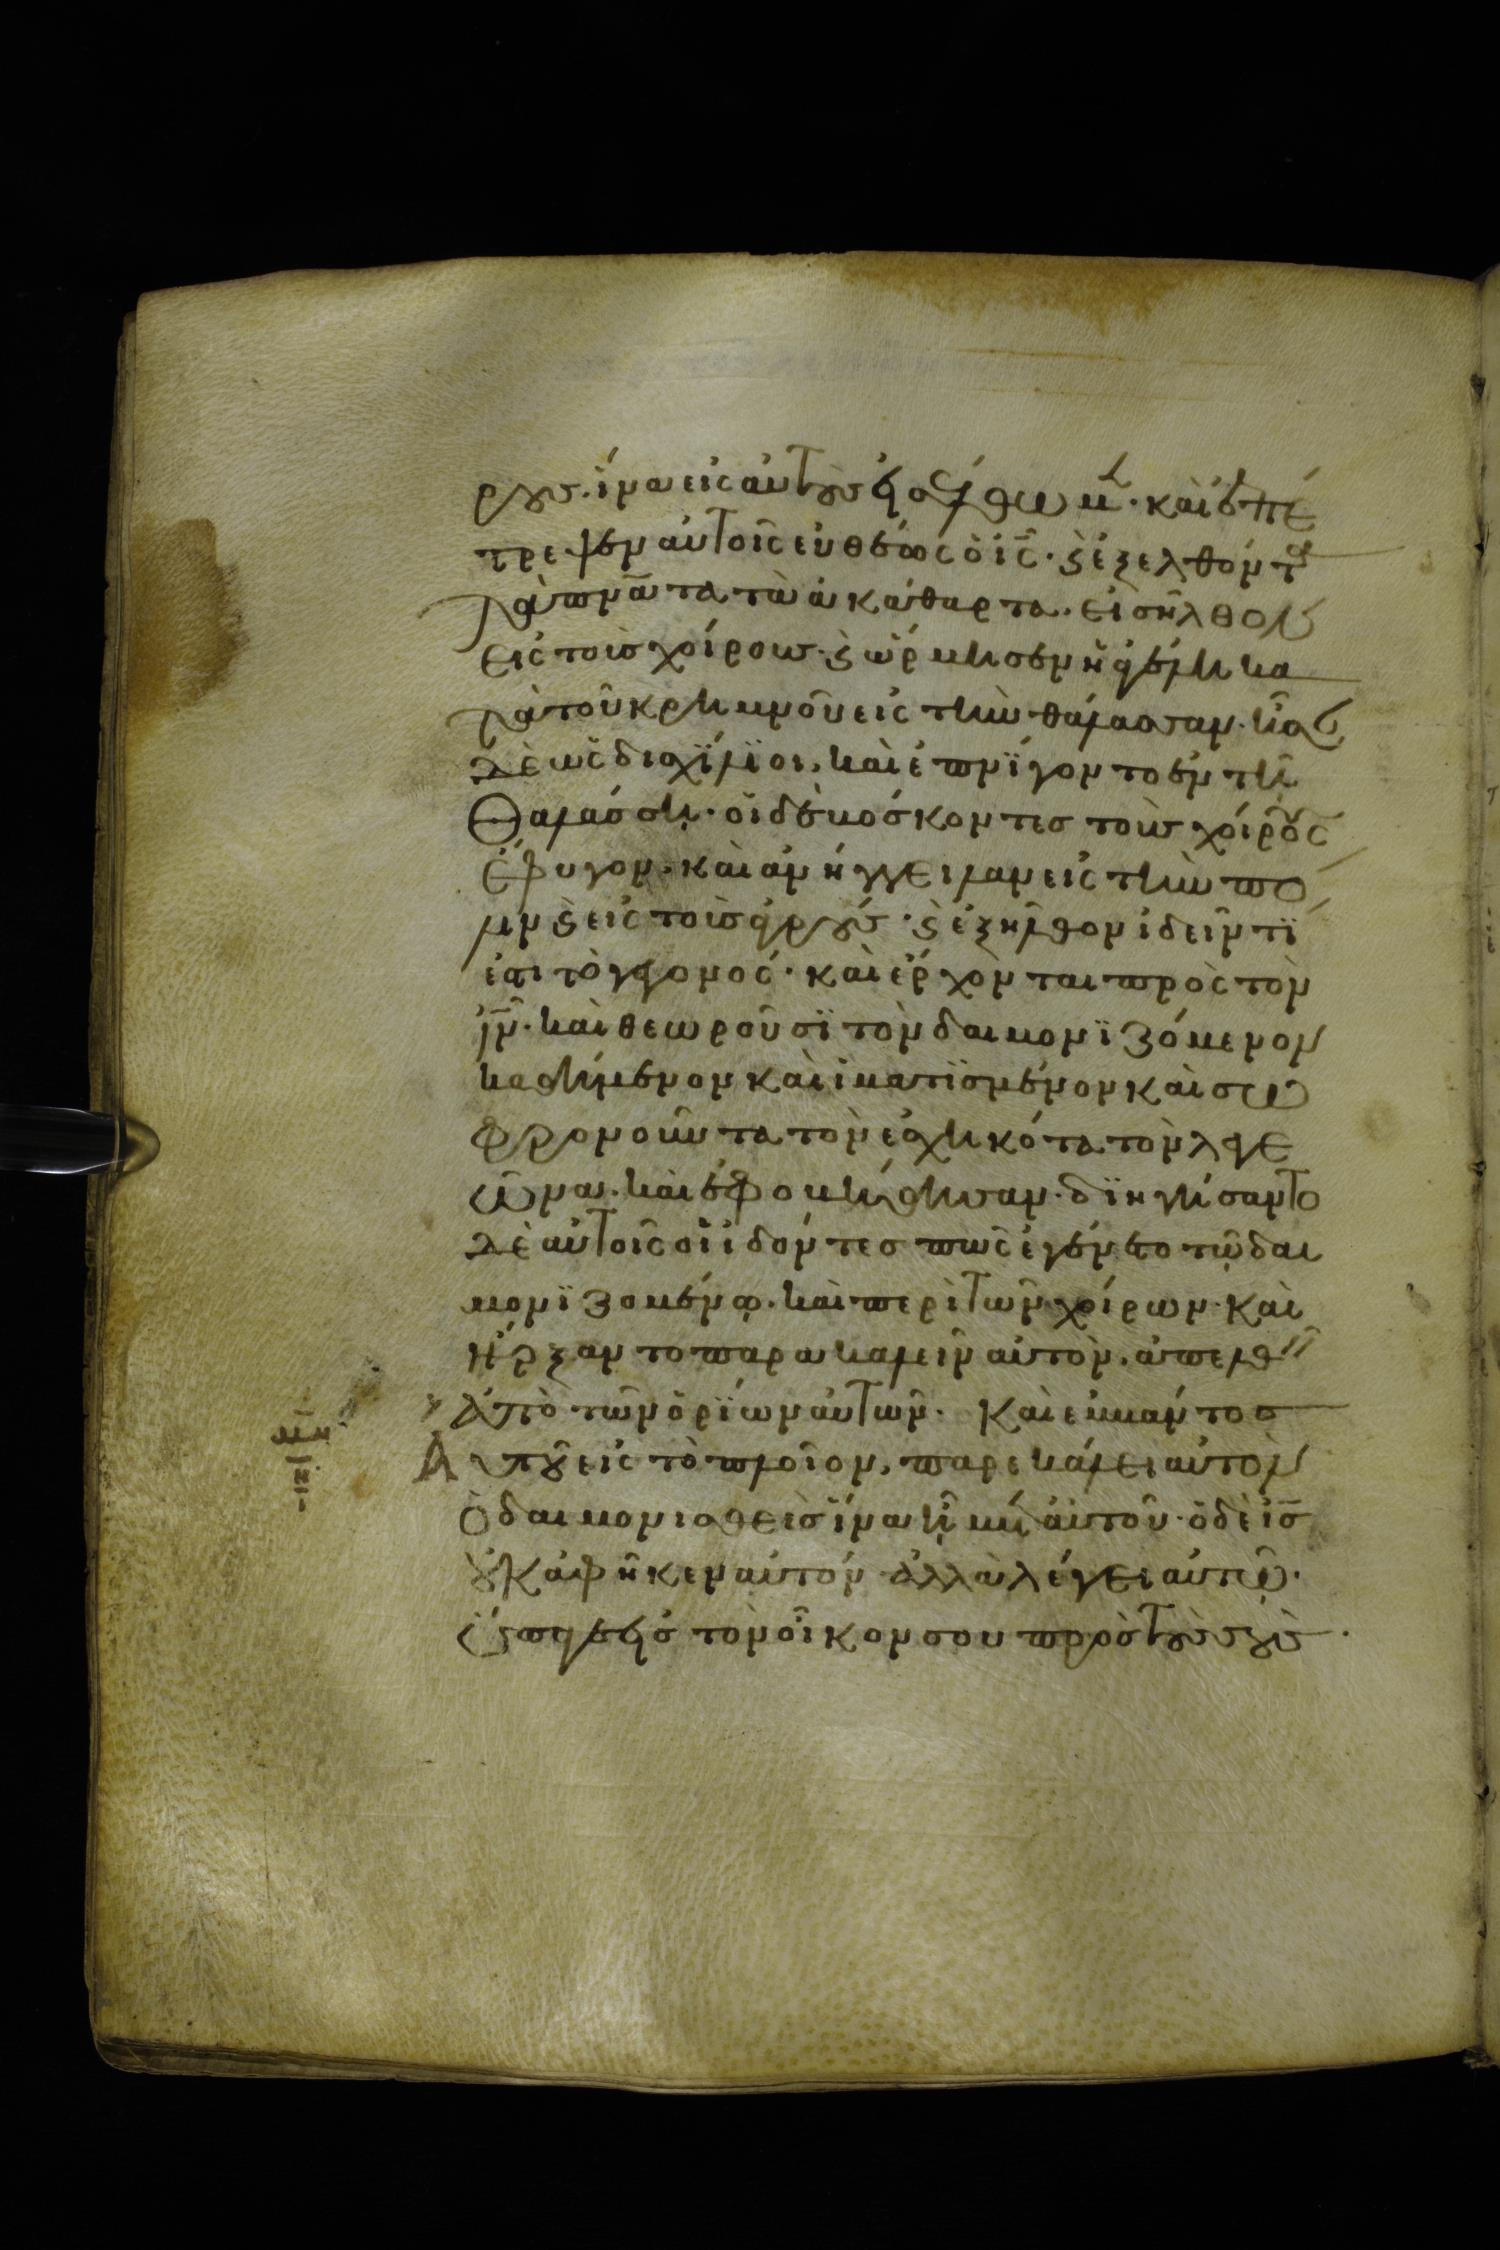 ρους. ἵνα εἰς αὐτοὺς εἰσέλθωμεν. καὶ ἐπέ
τρεψεν αὐτοῖς εὐθέως ὁ ἰς̅. καὶ ἐξελθόντα
τὰ πνα̅τα τὰ ἀκάθαρτα. εἰσῆλθον
εἰς τοὺς χοίρους. καὶ ὥρμησεν ἡ ἀγέλη κα
τὰ τοῦ κρημνοῦ εἰς τὴν θάλασσαν. ἦσαν
δὲ ὡς δισχίλϊοι. καὶ ἐπνΐγοντο ἐν τῆ
θαλάσση. οἱ δὲ βόσκοντες τοὺς χοίρους
ἔφυγον. καὶ ἀνήγγειλαν εἰς τὴν πό
λιν καὶ εἰς τοὺς ἀγρούς. καὶ ἐξῆλθον ἰδεῖν τΐ
ἐστι τὸ γεγονός. καὶ ἔρχονται πρὸς τὸν
ἰν̅. καὶ θεωροῦσϊ τὸν δαιμονϊζόμενον
καθήμενον καὶ ἱματϊσμένον καὶ σω
φρονοῦντα τὸν ἐσχηκότα τὸν λεγε
ῶνα. καὶ ἐφοβήθησαν. δϊηγήσαντο
δὲ αὐτοῖς οἱ ἰδόντες πῶς ἐγένετο τῶ δαι
μονϊζομένω. καὶ περὶ τῶν χοίρων. καὶ
ἤρξαντο παρακαλεῖν αὐτὸν. ἀπελθεῖν
ἀπὸ τῶν ὁρΐων αὐτῶν. Καὶ ἐμβάντος
αὐτοῦ εἰς τὸ πλοῖον, παρεκάλει αὐτὸν
ὁ δαιμονισθεὶς ἵνα ἦ μετ' αὐτοῦ. ὁ δὲ ἰς̅
οὐκ ἀφῆκεν αὐτόν ἀλλὰ λέγει αὐτῶ.
ὕπαγε εἰς τὸν οἶκον σου πρὸς τοὺς σοὺς.